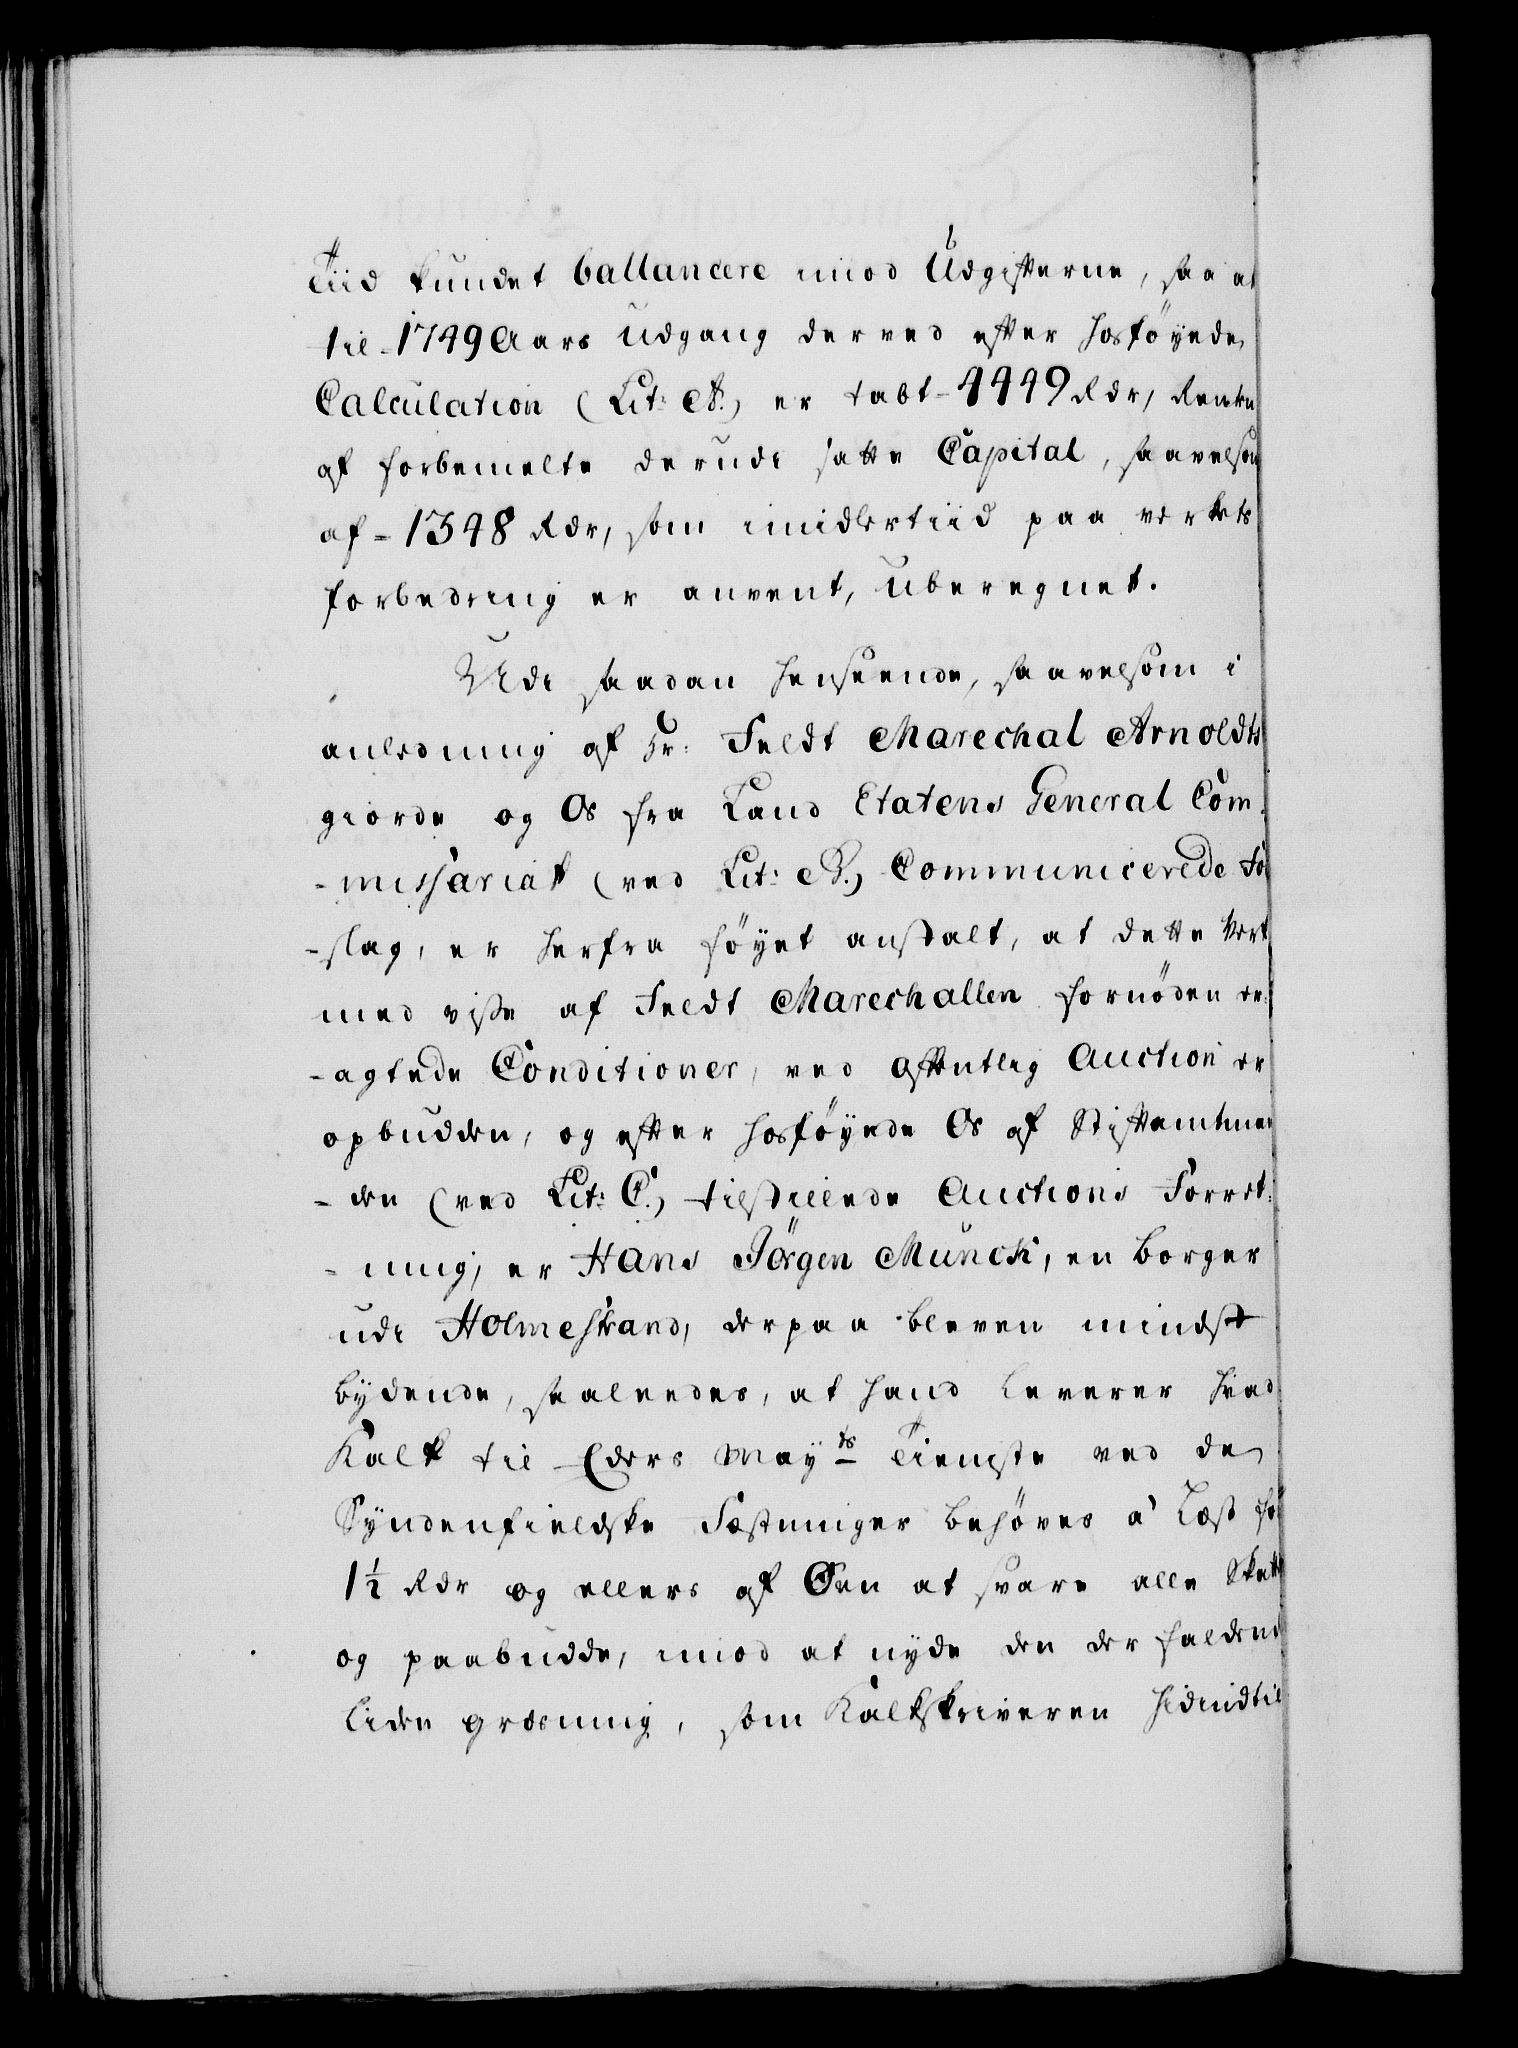 Tiid kundet ballancere imod Udgifterne, saa at
til 1749 Aars Udgang derved efter hosföyede
Calculation (Lit: A.) er tabt - 4449 Rdr, Renten
af forbemelte derudi satte Capital, saavelsom
af = 1348 Rdr, som imidlertiid paa verkets
forbedring er anvent, Uberegnet.
Udi saadan henseende, saavelsom i
anledning af Hr: Feldt Marechal Arnoldts
giorde og Os fra Land Etatens General Com-
-missariat (ved Lit: B.) Communicerede For
-slag, er herfra föyet anstalt, at dette Verk
med visse af Feldt Marechallen fornöden er-
-agtede Conditioner, ved offentlig Auction er
opbudden, og efter hosföyede Os af Stiftamtman
-den (ved Lit: C.) tilstillede Auctions Forret-
-ning, er Hans Jörgen Munck, en borger
udi Holmestrand, derpaa bleven mindst
bydende, saaleedes, at hand leverer hvad
Kalk til Eders Mayts Tieniste ved de
Syndenfieldske Fæstninger behöves à Læst for
1½ Rdr og ellers af Öen at svare alle Skatter
og paabudde, imod at nyde den der faldende
liden græsning, som Kalkskriveren hidindtil